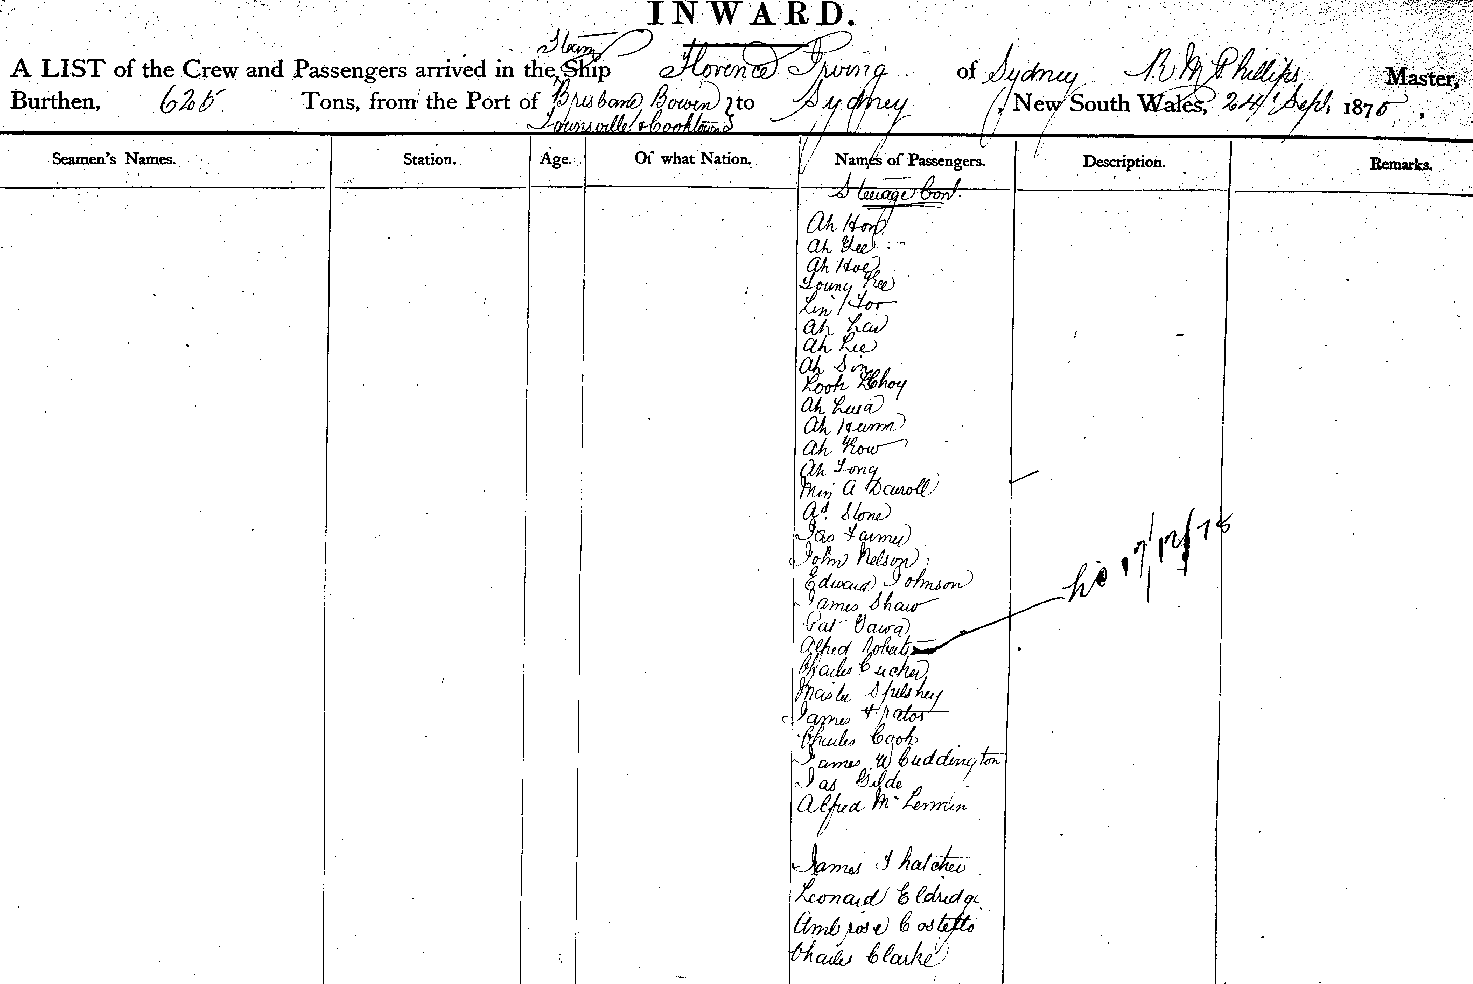 INWARD.
A LIST of the Crew and Passengers arrived in the Steam Ship Florence Irving of Sydney R M Phillips Master,
Burthen, 625 Tons, from the Port of Brisbane Bowen Townsville & Cooktown to Sydney, New South Wales, 24 Sept. 1875.
Seamen's Names. Station. Age. Of what Nation. Names of Passengers. Description. Remarks.
Steerage Cont.
Ah Hon
Ah Yee
Ah Hoe
Young Kee
Lin Foo
Ah Lau
Ah Lee
Ah Sin
Look Choy
Ah
Ah Humm
Ah Kow
Ah Tong
Miss A
Ad. Stone
Jas Farmer
John Nelson
Edward Johnson
James Shaw
Pat
Alfred Roberts
17/12/78
Charles
James
Charles Cook
James W Cuddington
Jas Gilde
Alfred Mc Lennin
James Thatcher
Leonard Eldridge
Ambrose Costello
Charles Clarke